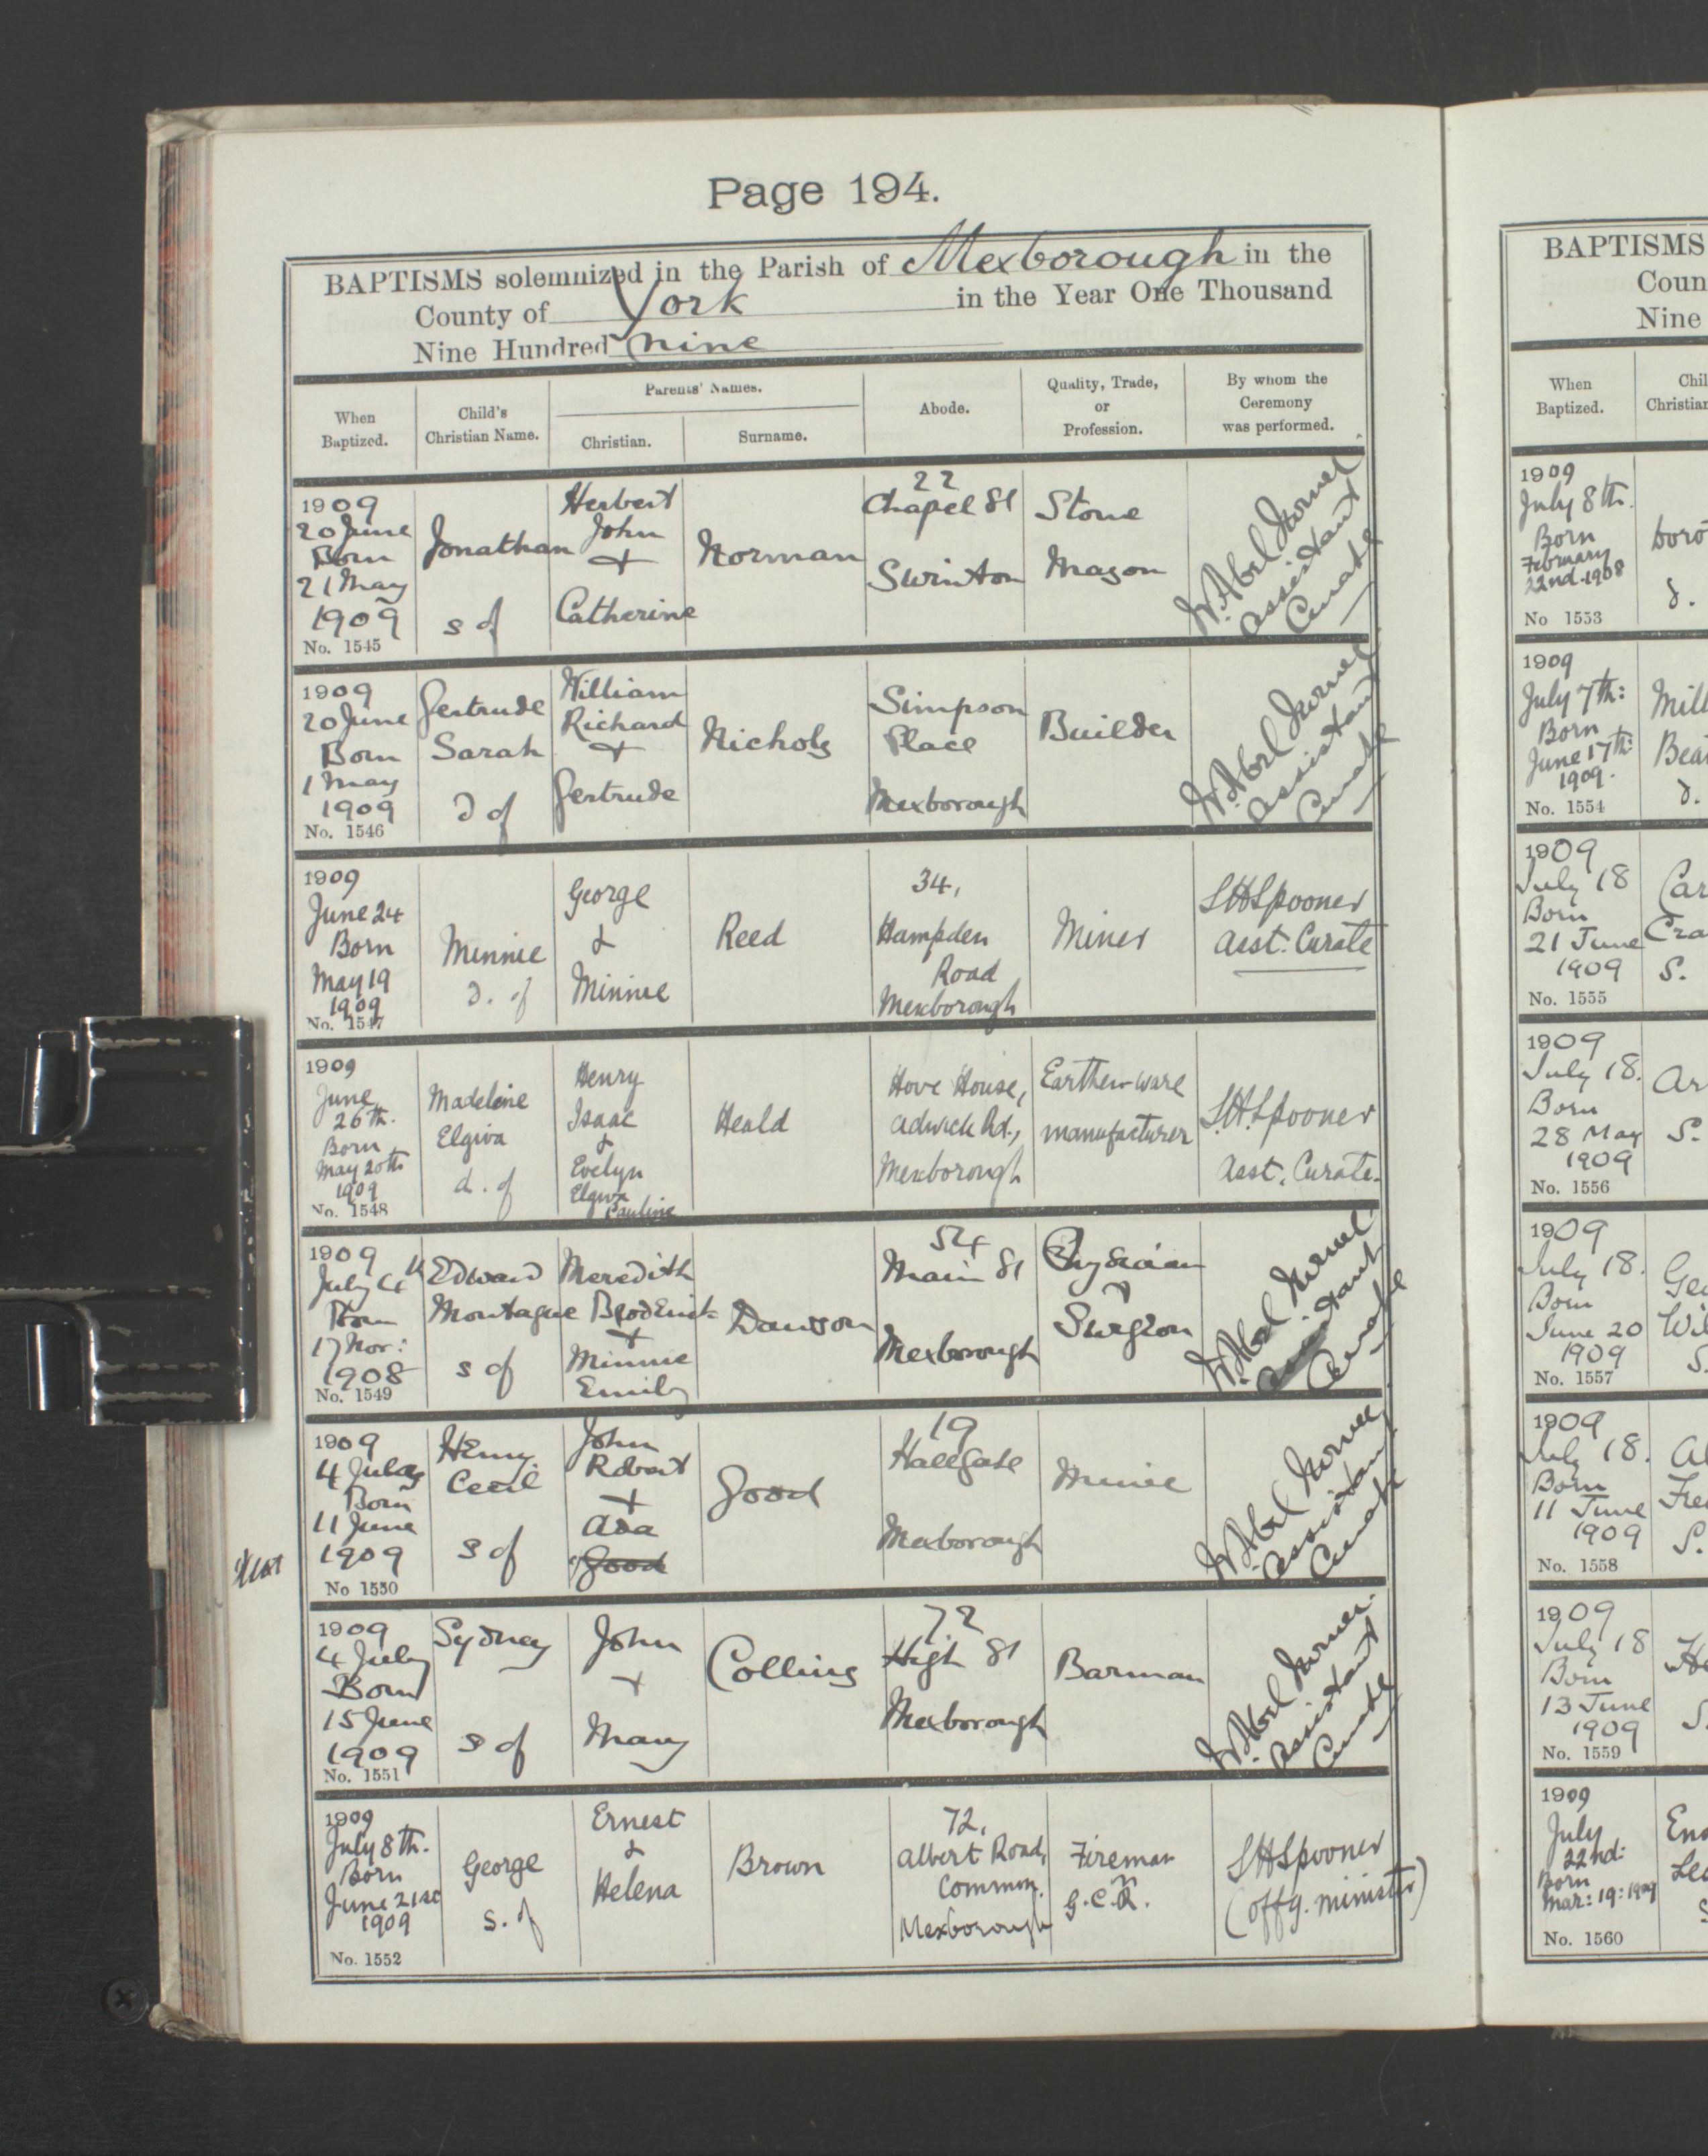 Page 194.
BAPTISMS solemnized in the Parish of Mexborough in the
County of York in the Year One Thousand
Nine Hundred nine
When Baptized.
Child's Christian Name.
Parents' Names.
Christian.
Surname.
Abode.
Quality, Trade, or Profession.
By whom the Ceremony was performed.
1909
20 June
Born
21 May
1909
No. 1545
Jonathan
s of
Herbert
John
+
Catherine
Norman
22
Chapel St
Swinton
Stone
Mason
Assistant
Curate
1909
20 June
Born
1 May
1909
No. 1546
Gertrude
Sarah
d of
William
Richard
+
Gertrude
Nichols
Simpson
Place
Mexborough
Builder
Assistant
Curate
1909
June 24
Born
May 19
1909
No. 1547
Minnie
d. of
George
&
Minnie
Reed
34,
Hampden
Road
Mexborough
Miner
S.H.Spooner
Asst. Curate
1909
June
26th.
Born
May 20th
1909
No. 1548
Madeleine
Elgiva
d. of
Henry
Isaac
&
Evelyn
Elgiva
Pauline
Heald
Hove House,
Adwick Rd.,
Mexborough
Earthenware
manufacturer
S.H.Spooner
Asst. Curate.
1909
July 4th
Born
17 Nov:
1908
No. 1549
Edward
Montague
s of
Meredith
Broderick
+
Minnie
Emily
Dawson
54
Main St
Mexborough
Physician
Surgeon
Assistant
Curate
1909
4 July
Born
11 June
1909
No 1550
Henry
Cecil
s of
John
Robert
+
Ada
Good
Good
19
Hallgate
Mexborough
Miner
Assistant
Curate
1909
4 July
Born
15 June
1909
No. 1551
Sydney
s of
John
+
Mary
Collins
72
High St
Mexborough
Barman
Assistant
Curate
1909
July 8th.
Born
June 21st
1909
No. 1552
George
s. of
Ernest
&
Helena
Brown
72,
Albert Road,
Common.
Mexborough
Fireman
G.C.R.
S.H.Spooner
(offg. minister)
BAPTISMS
Coun
Nine
When Baptized.
Chil
Christian
1909
July 8th.
Born
February
22nd. 1908
No 1553
d.
1909
July 7th:
Born
June 17th:
1909.
No. 1554
Mill
Bea
d.
1909
July 18
Born
21 June
1909
No. 1555
Car
Cra
S.
1909
July 18.
Born
28 May
1909
No. 1556
Ar
S.
1909
July 18.
Born
June 20
1909
No. 1557
Geo
Wil
S.
1909
July 18.
Born
11 June
1909
No. 1558
Al
Fre
S.
1909
July 18
Born
13 June
1909
No. 1559
S.
1909
July
22nd:
Born
Mar: 19: 1909
No. 1560